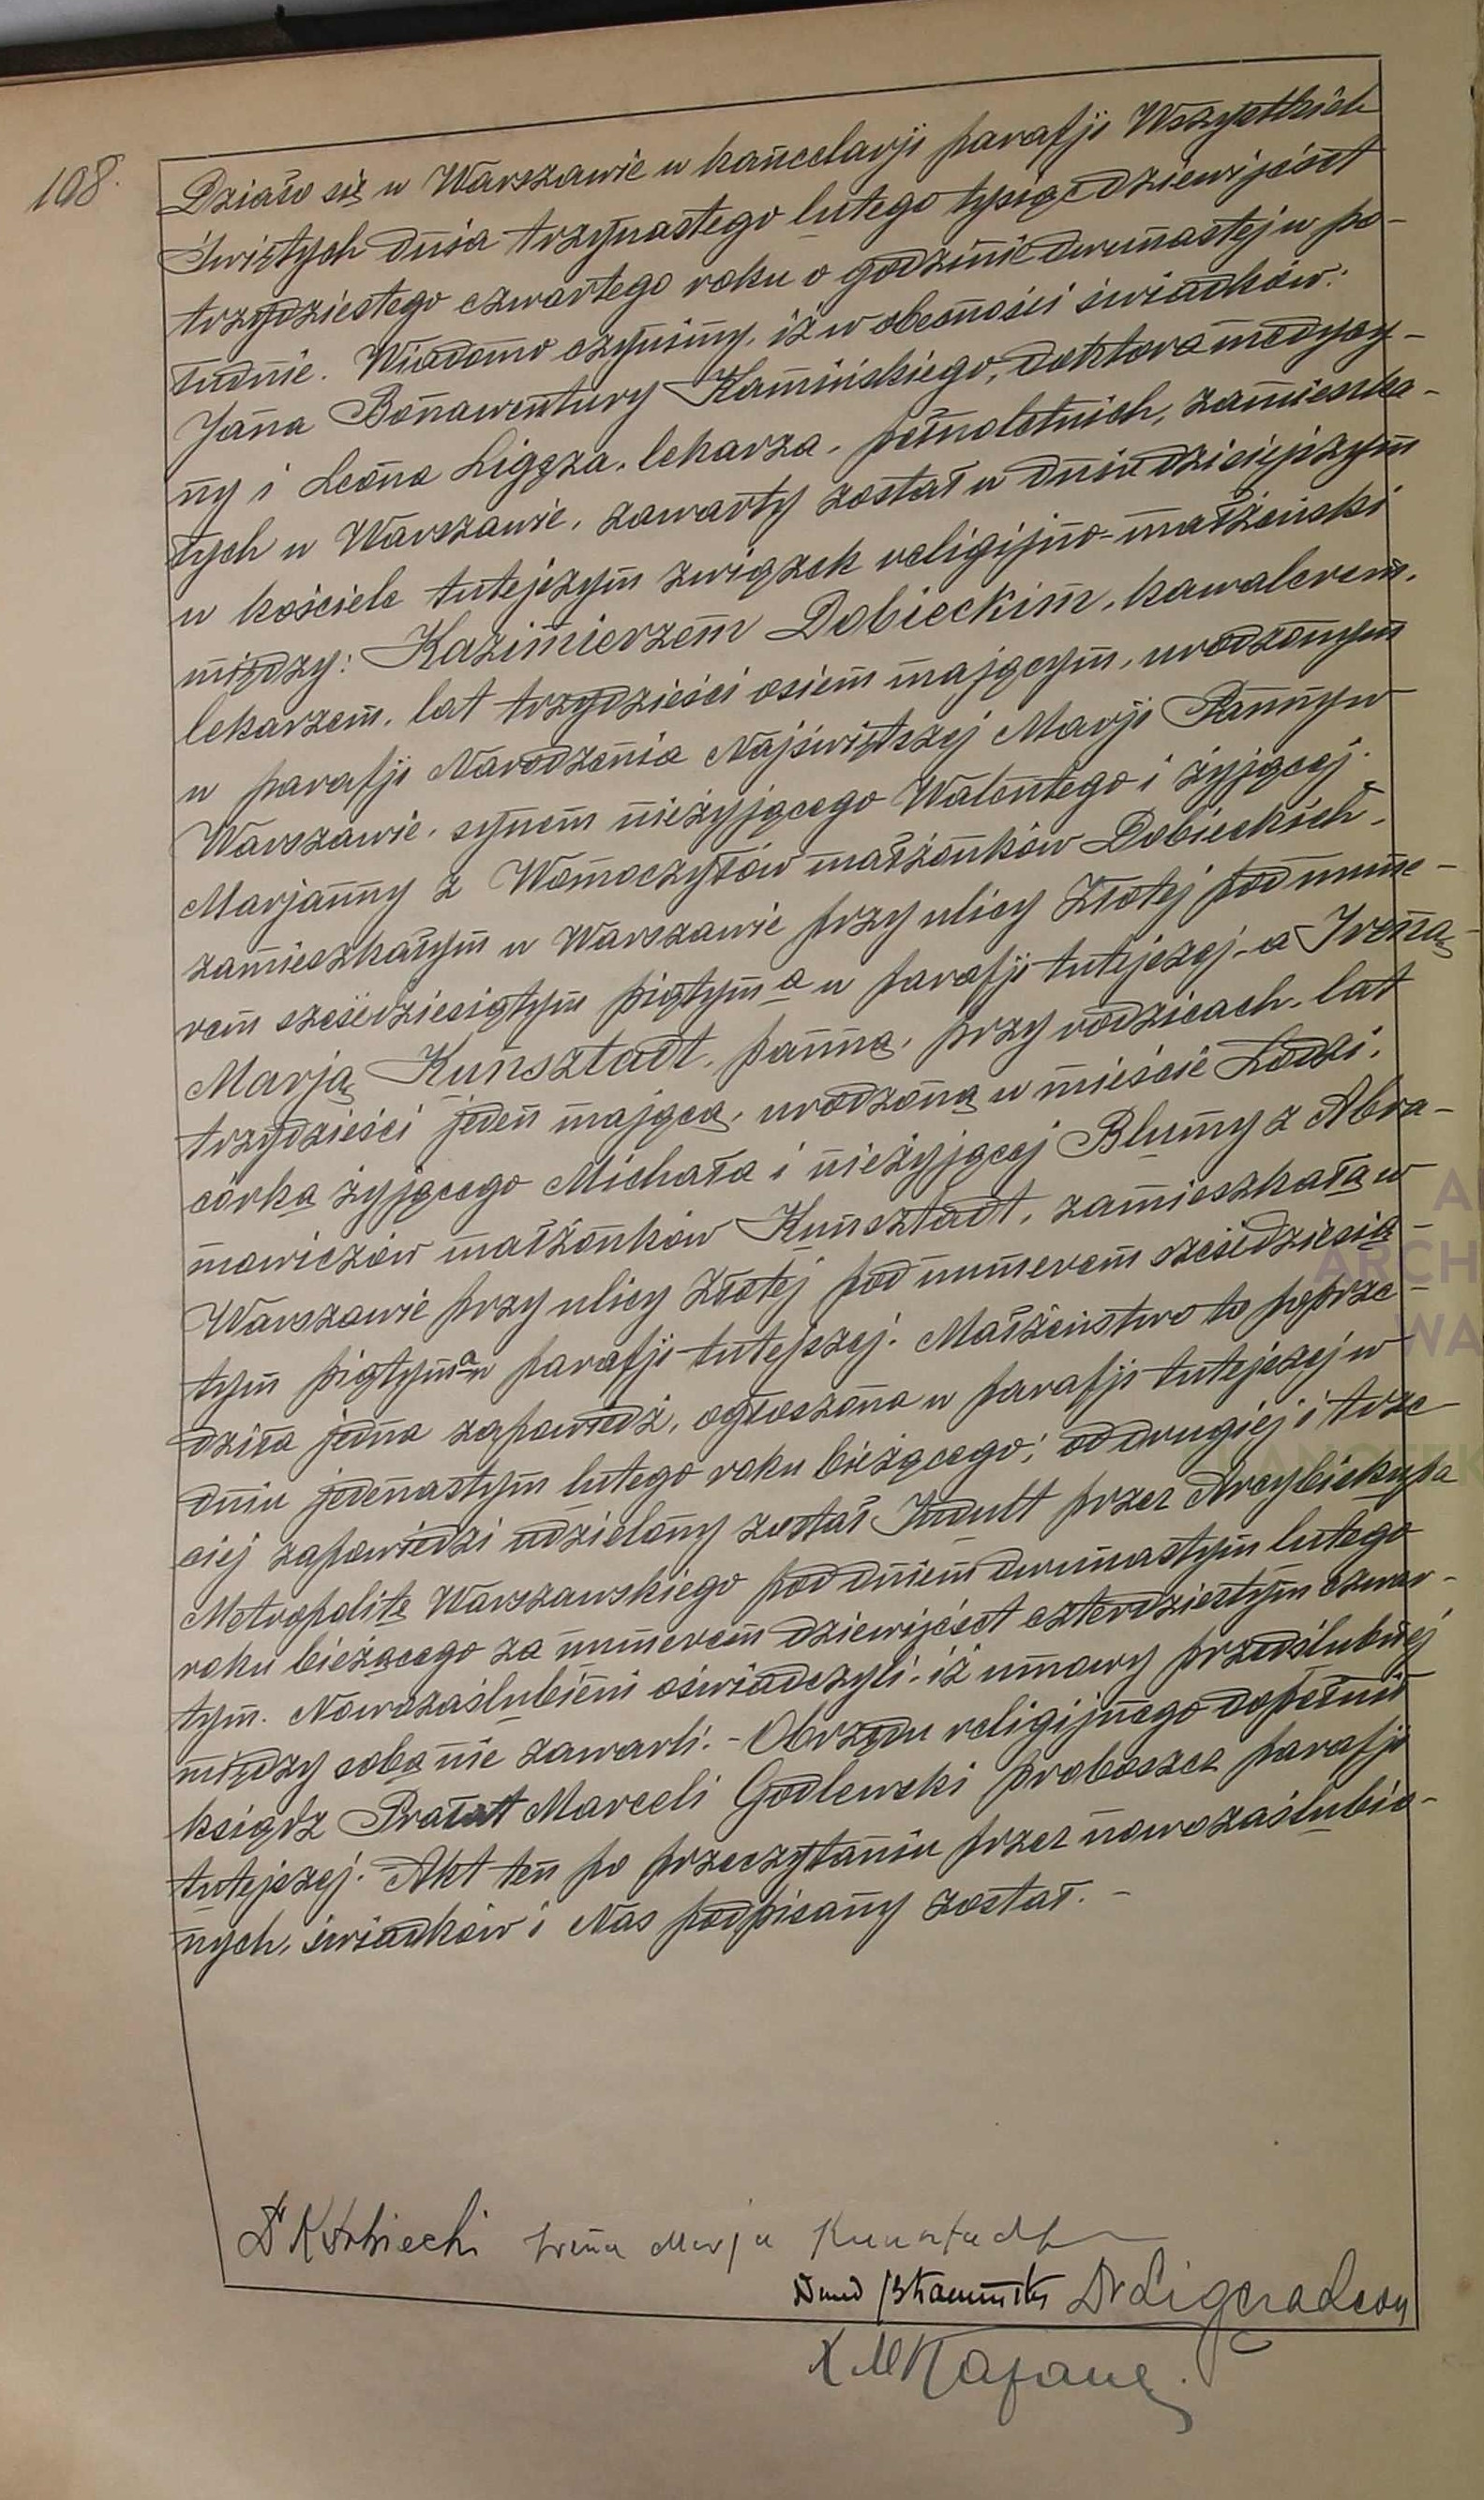 108.
Działo się w Warszawie w kancelarji parafji Wszystkich
Świętych dnia trzynastego lutego tysiąc dziewięćset
trzydziestego czwartego roku o godzinie dwunastej w po-
łudnie. Wiadomo czynimy, iż w obecności świadków:
Jana Bonawentury Kamińskiego, doktora medycy-
ny i Leona Ligęza, lekarza, pełnoletnich, zamieszka-
łych w Warszawie, zawarty został w dniu dzisiejszym
w kościele tutejszym związek religijno-małżeński
między: Kazimierzem Dobieckim, kawalerem,
lekarzem, lat trzydzieści osiem mającym, urodzonym
w parafji Narodzenia Najświętszej Marji Panny w
Warszawie, synem nieżyjącego Walentego i żyjącej
Marjanny z małżonków Dobieckich,
zamieszkałym w Warszawie przy ulicy Złotej pod nume-
rem sześćdziesiątym piątym a w parafji tutejszej - a Ireną
Marją Kunsztadt, panną, przy rodzicach, lat
trzydzieści jeden mającą, urodzoną w mieście Łodzi,
córką żyjącego Michała i nieżyjącej Blumy z Abra-
mowiczów małżonków Kunsztadt, zamieszkałą w
Warszawie przy ulicy Złotej pod numerem sześćdziesią-
tym piątym a w parafji tutejszej. Małżeństwo to poprze-
dziła jedna zapowiedź, ogłoszona w parafji tutejszej w
dniu jedenastym lutego roku bieżącego; od drugiej i trze-
ciej zapowiedzi udzielony został Indult przez Arcybiskupa
Metropolitę Warszawskiego pod dniem dwunastym lutego
roku bieżącego za numerem dziewięćset czterdziestym czwar-
tym. Nowozaślubieni oświadczyli, iż umowy przedślubnej
między sobą nie zawarli. - Obrzędu religijnego dopełnił
ksiądz Prałat Marceli Godlewski proboszcz parafji
tutejszej. Akt ten po przeczytaniu przez nowozaślubio-
nych, świadków i Nas podpisany został. -
Dr K Dobiecki Irena Marja Kunsztadt
Dr Ligęza Leon